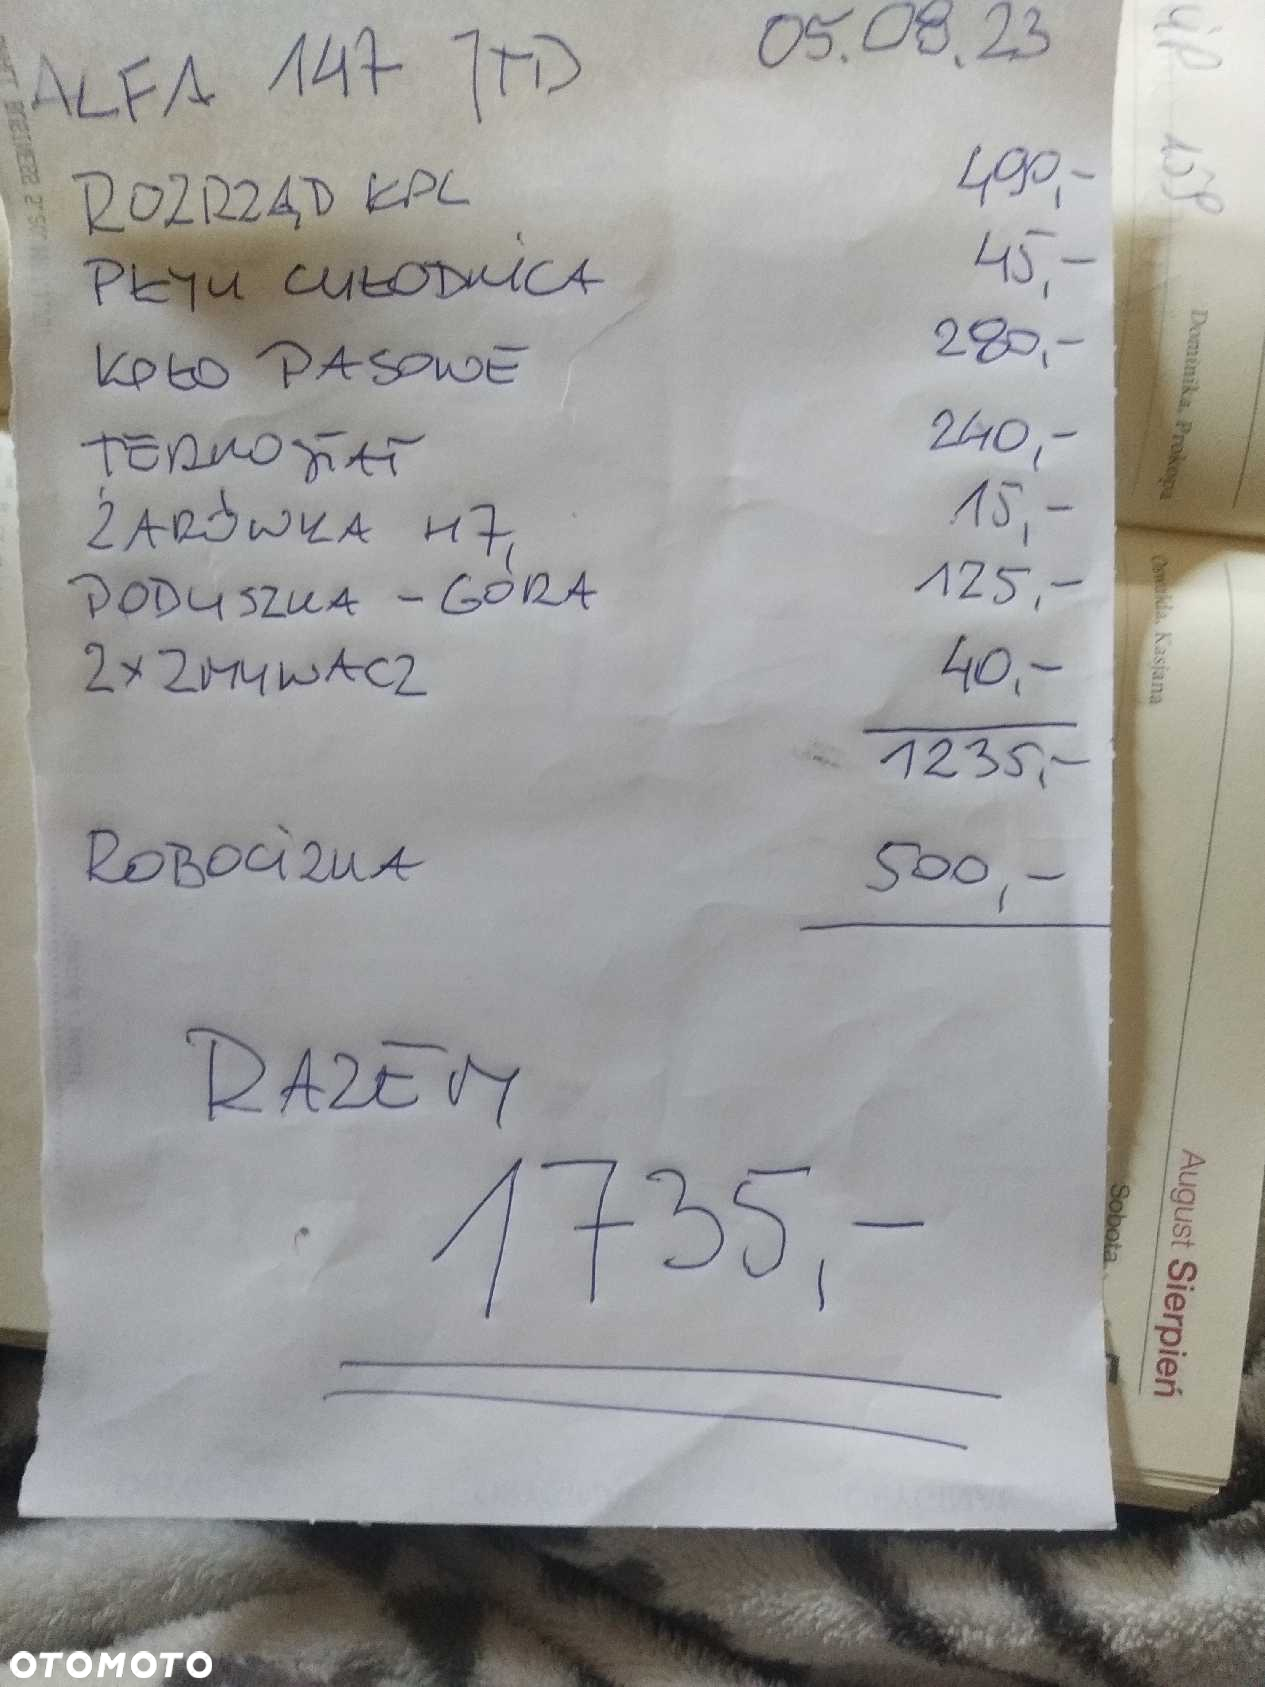 ALFA 147 JTD 05.08.23
ROZRZĄD KPL 490,-
PŁYN CHŁODNICA 45,-
KOŁO PASOWE 280,-
TERMOSTAT 240,-
ŻARÓWKA H7, 15,-
PODUSZKA - GÓRA 125,-
2x ZMYWACZ 40,-
1235,-
ROBOCIZNA 500,-
RAZEM
1735,-
Dominika, Prokopa
Oswalda, Kasjana
August Sierpień
Sobota
OTOMOTO